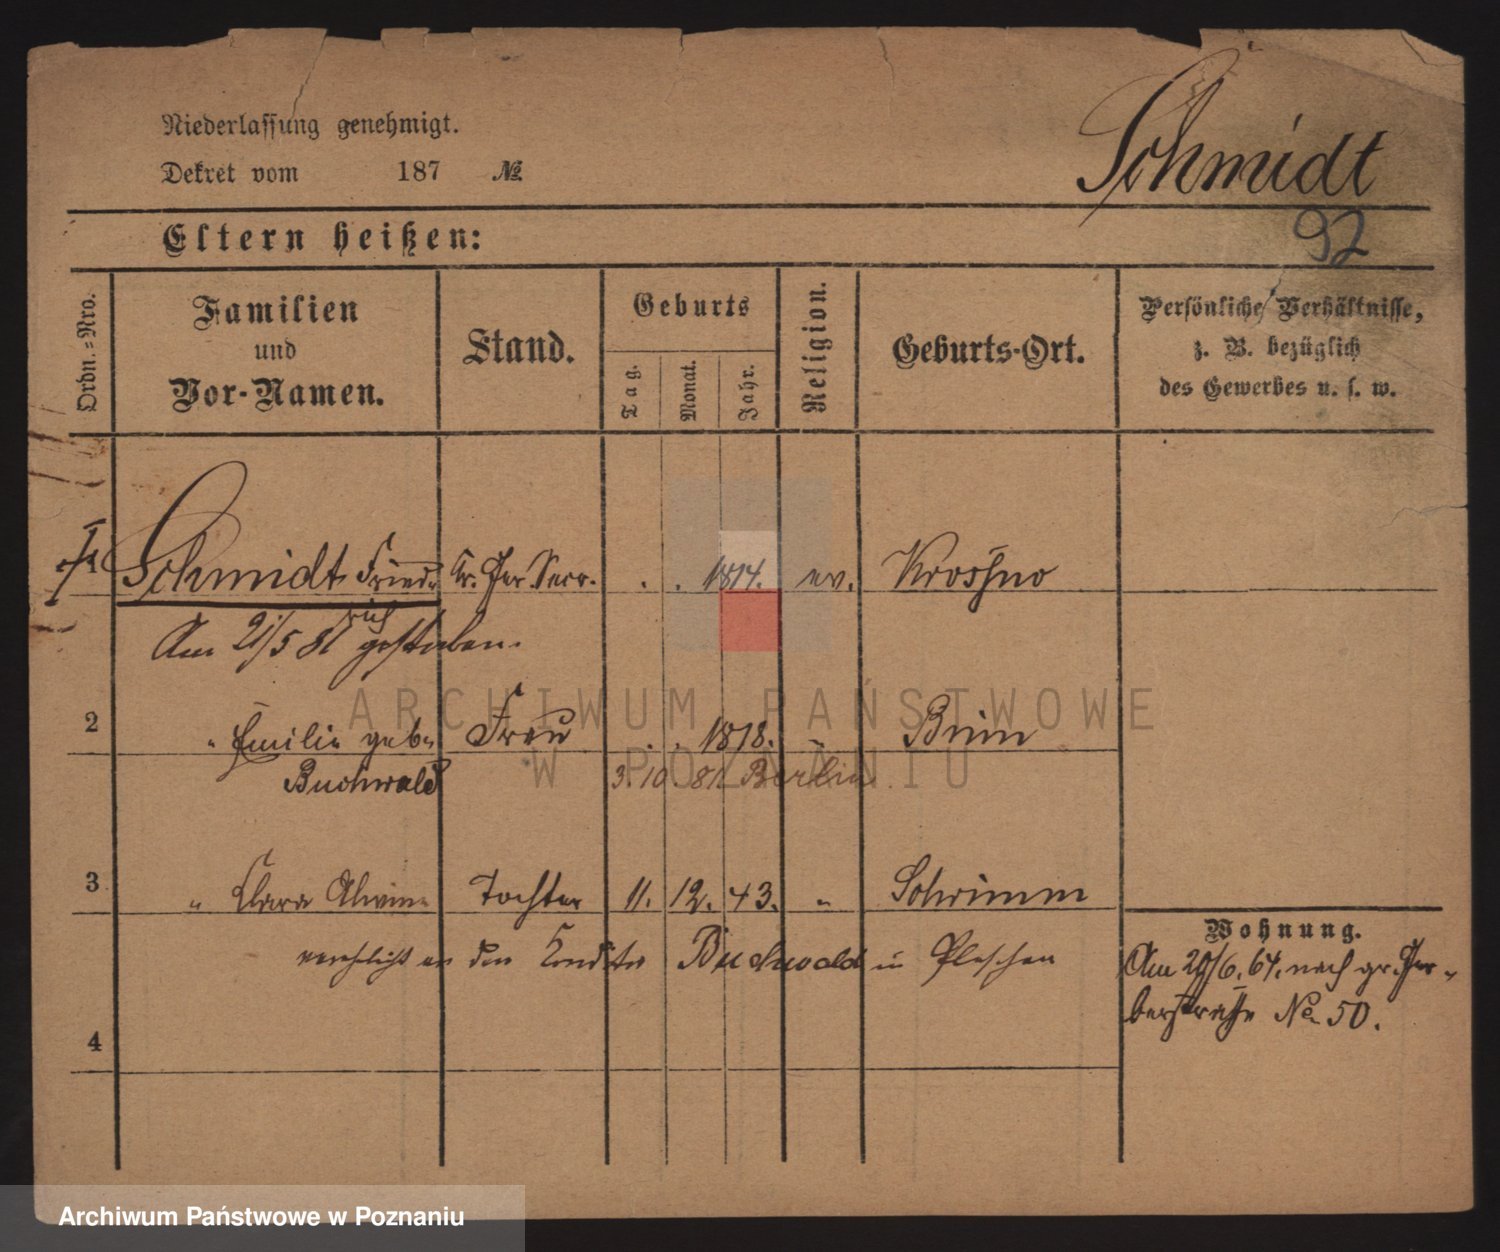 Niederlassung genehmigt.
Schmidt
Dekret vom 187 №
Eltern heißen:
92
Ordn.=Nro.
Familien
und
Vor-Namen.
Stand.
Geburts
Tag.
Monat.
Jahr.
Religion.
Geburts-Ort.
Persönliche Verhältnisse,
z. B. bezüglich
des Gewerbes u. s. w.
1 Schmidt Fried= Kr. Ger. Secr. . . 1814. ev. Krossno
rich
Am 21/5 81 gestorben.
ARCHIWUM PAŃSTWOWE
W POZNANIU
2 " Emilie geb. Frau . . 1818. " Brinn
Buchwald 3. 10. 81 Berlin
3 " Clara Alwine Tochter 11. 12. 43. " Schrimm
Wohnung.
verehelicht an den Conditor Buchwald in Pleschen
Am 29/6. 64. nach gr. Ger=
berstraße No 50.
4
Archiwum Państwowe w Poznaniu